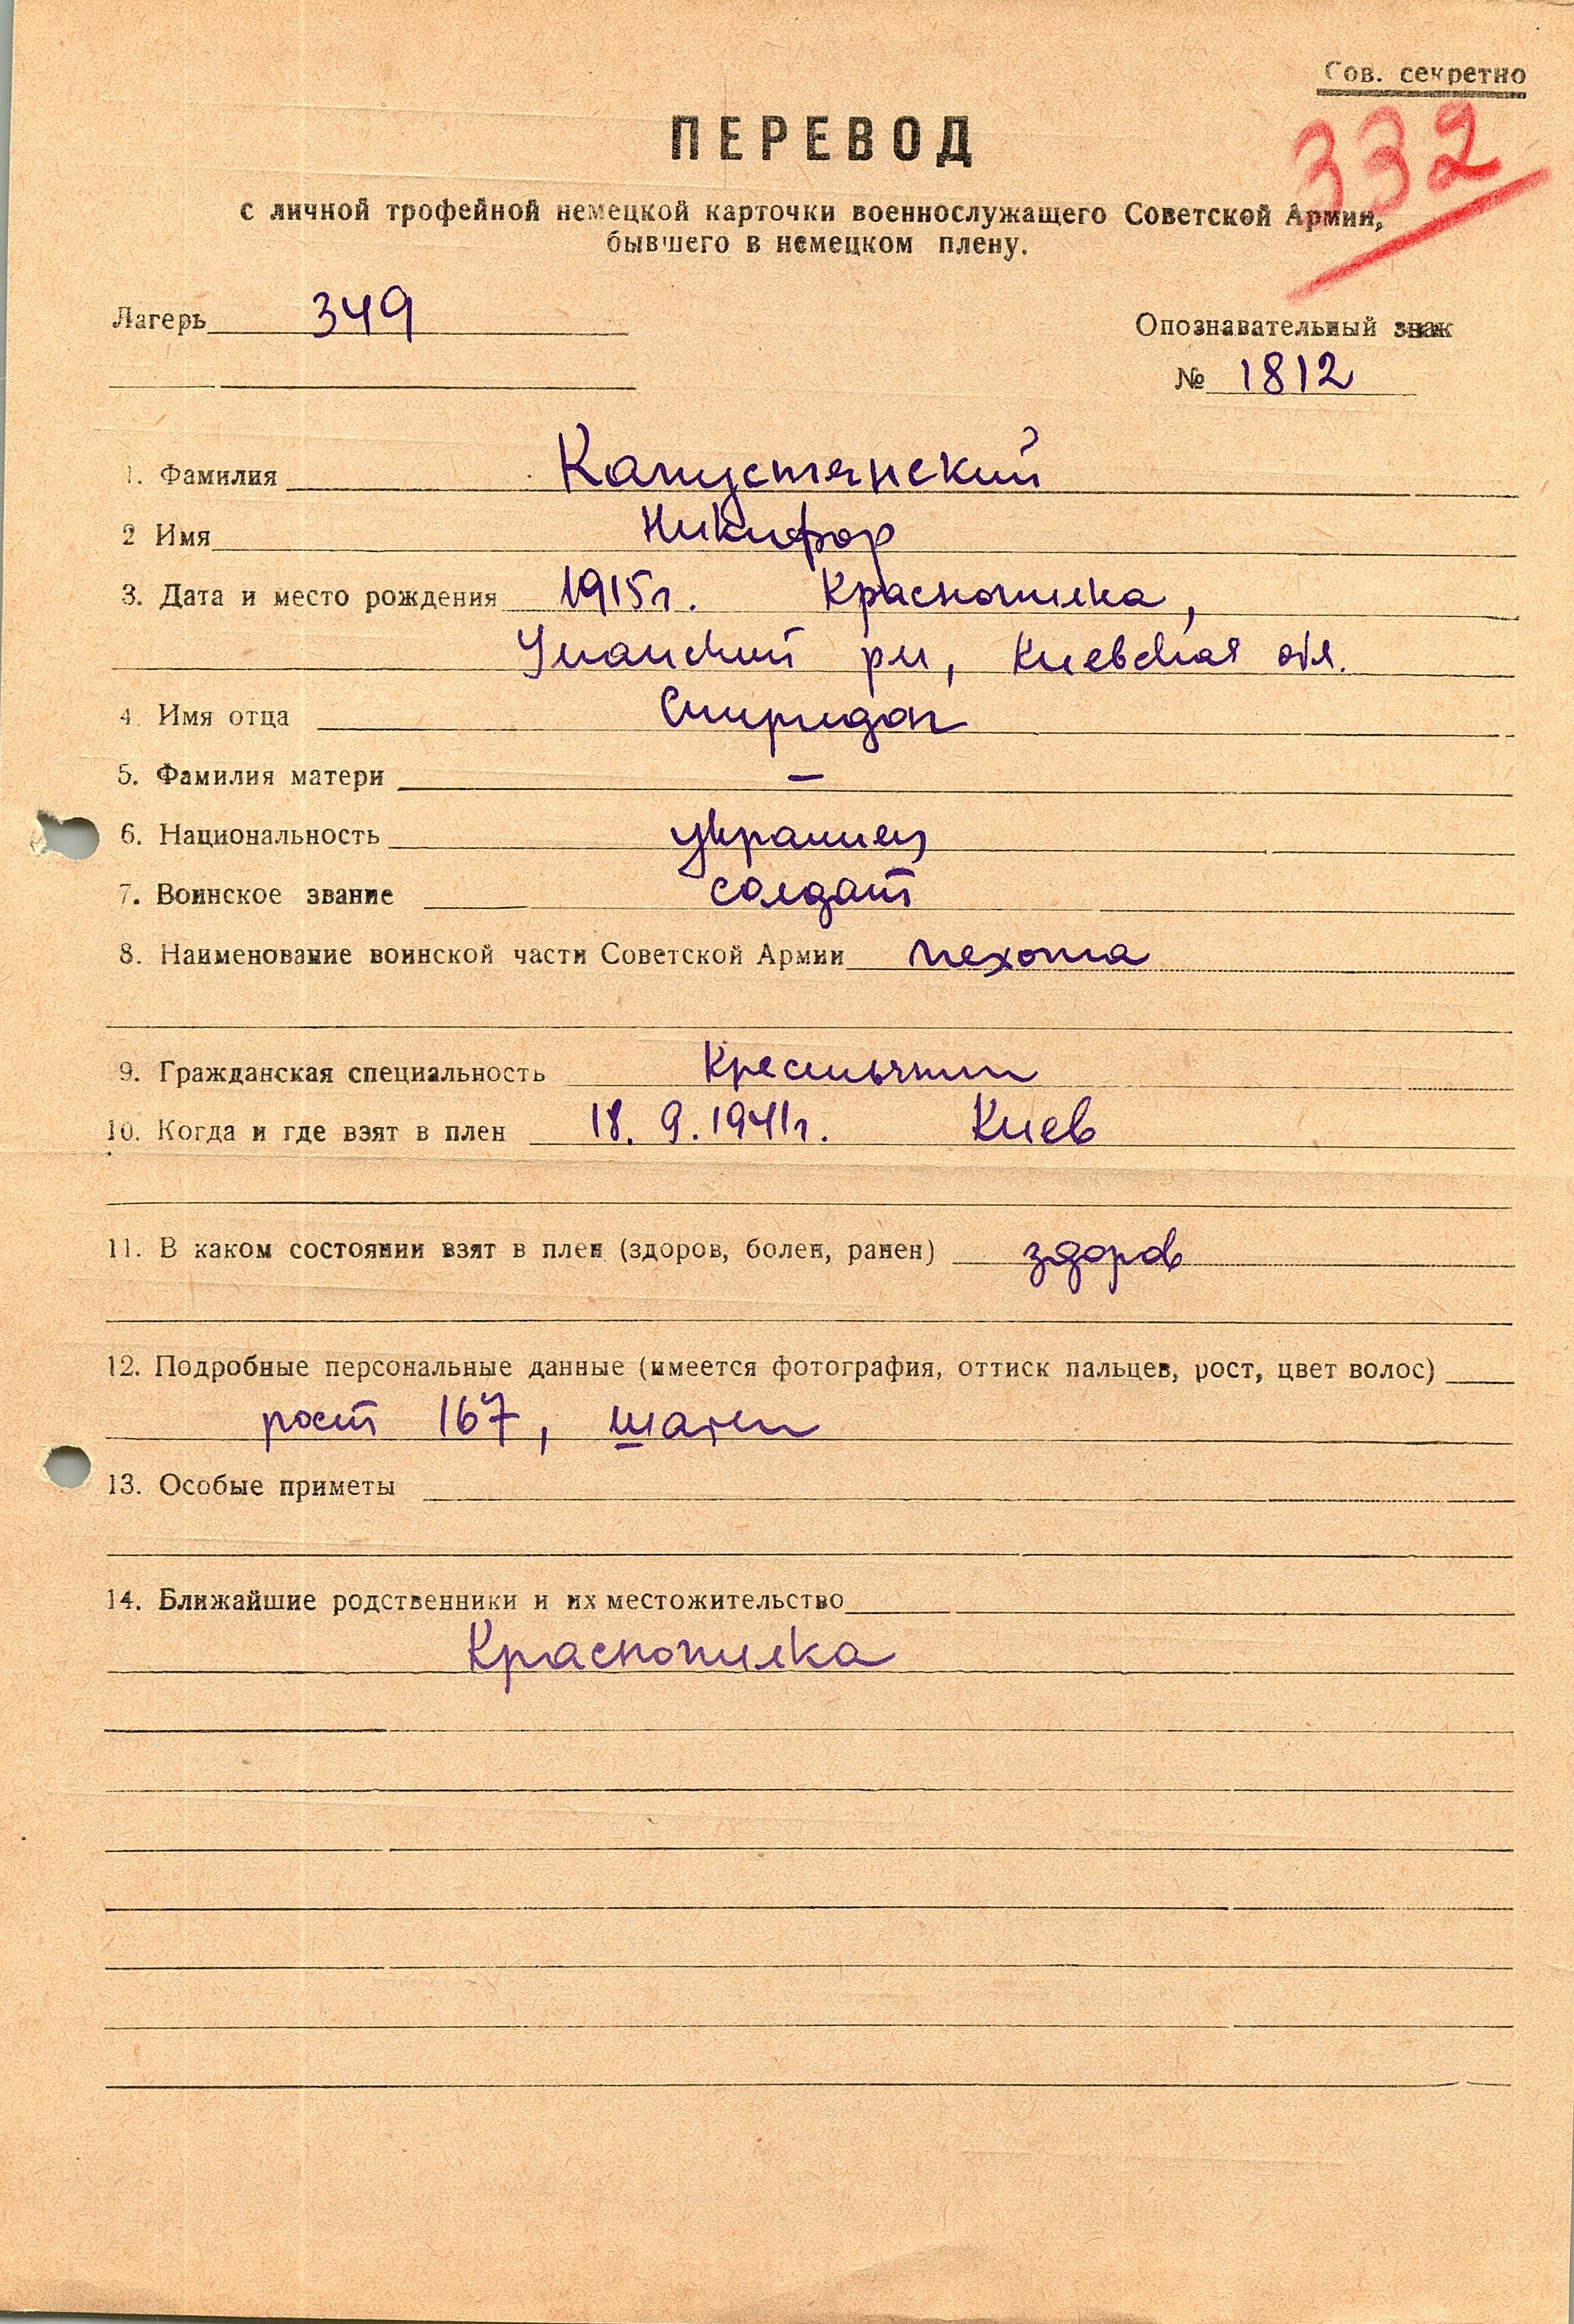 Сов. секретно
332
ПЕРЕВОД
с личной трофейной немецкой карточки военнослужащего Советской Армии,
бывшего в немецком плену.
Лагерь 349
Опознавательный знак
№ 1812
1. Фамилия Капустянский
2 Имя Никифор
3. Дата и место рождения 1915г. Краснопилка,
Уманский рн, Киевская обл.
4 Имя отца Спиридон
5. Фамилия матери —
6. Национальность украинец
7. Воинское звание солдат
8. Наименование воинской части Советской Армии пехота
9. Гражданская специальность Крестьянин
10. Когда и где взят в плен 18. 9. 1941г. Киев
11. В каком состоянии взят в плен (здоров, болен, ранен) здоров
12. Подробные персональные данные (имеется фотография, оттиск пальцев, рост, цвет волос)
рост 167, шатен
13. Особые приметы
14. Ближайшие родственники и их местожительство
Краснопилка